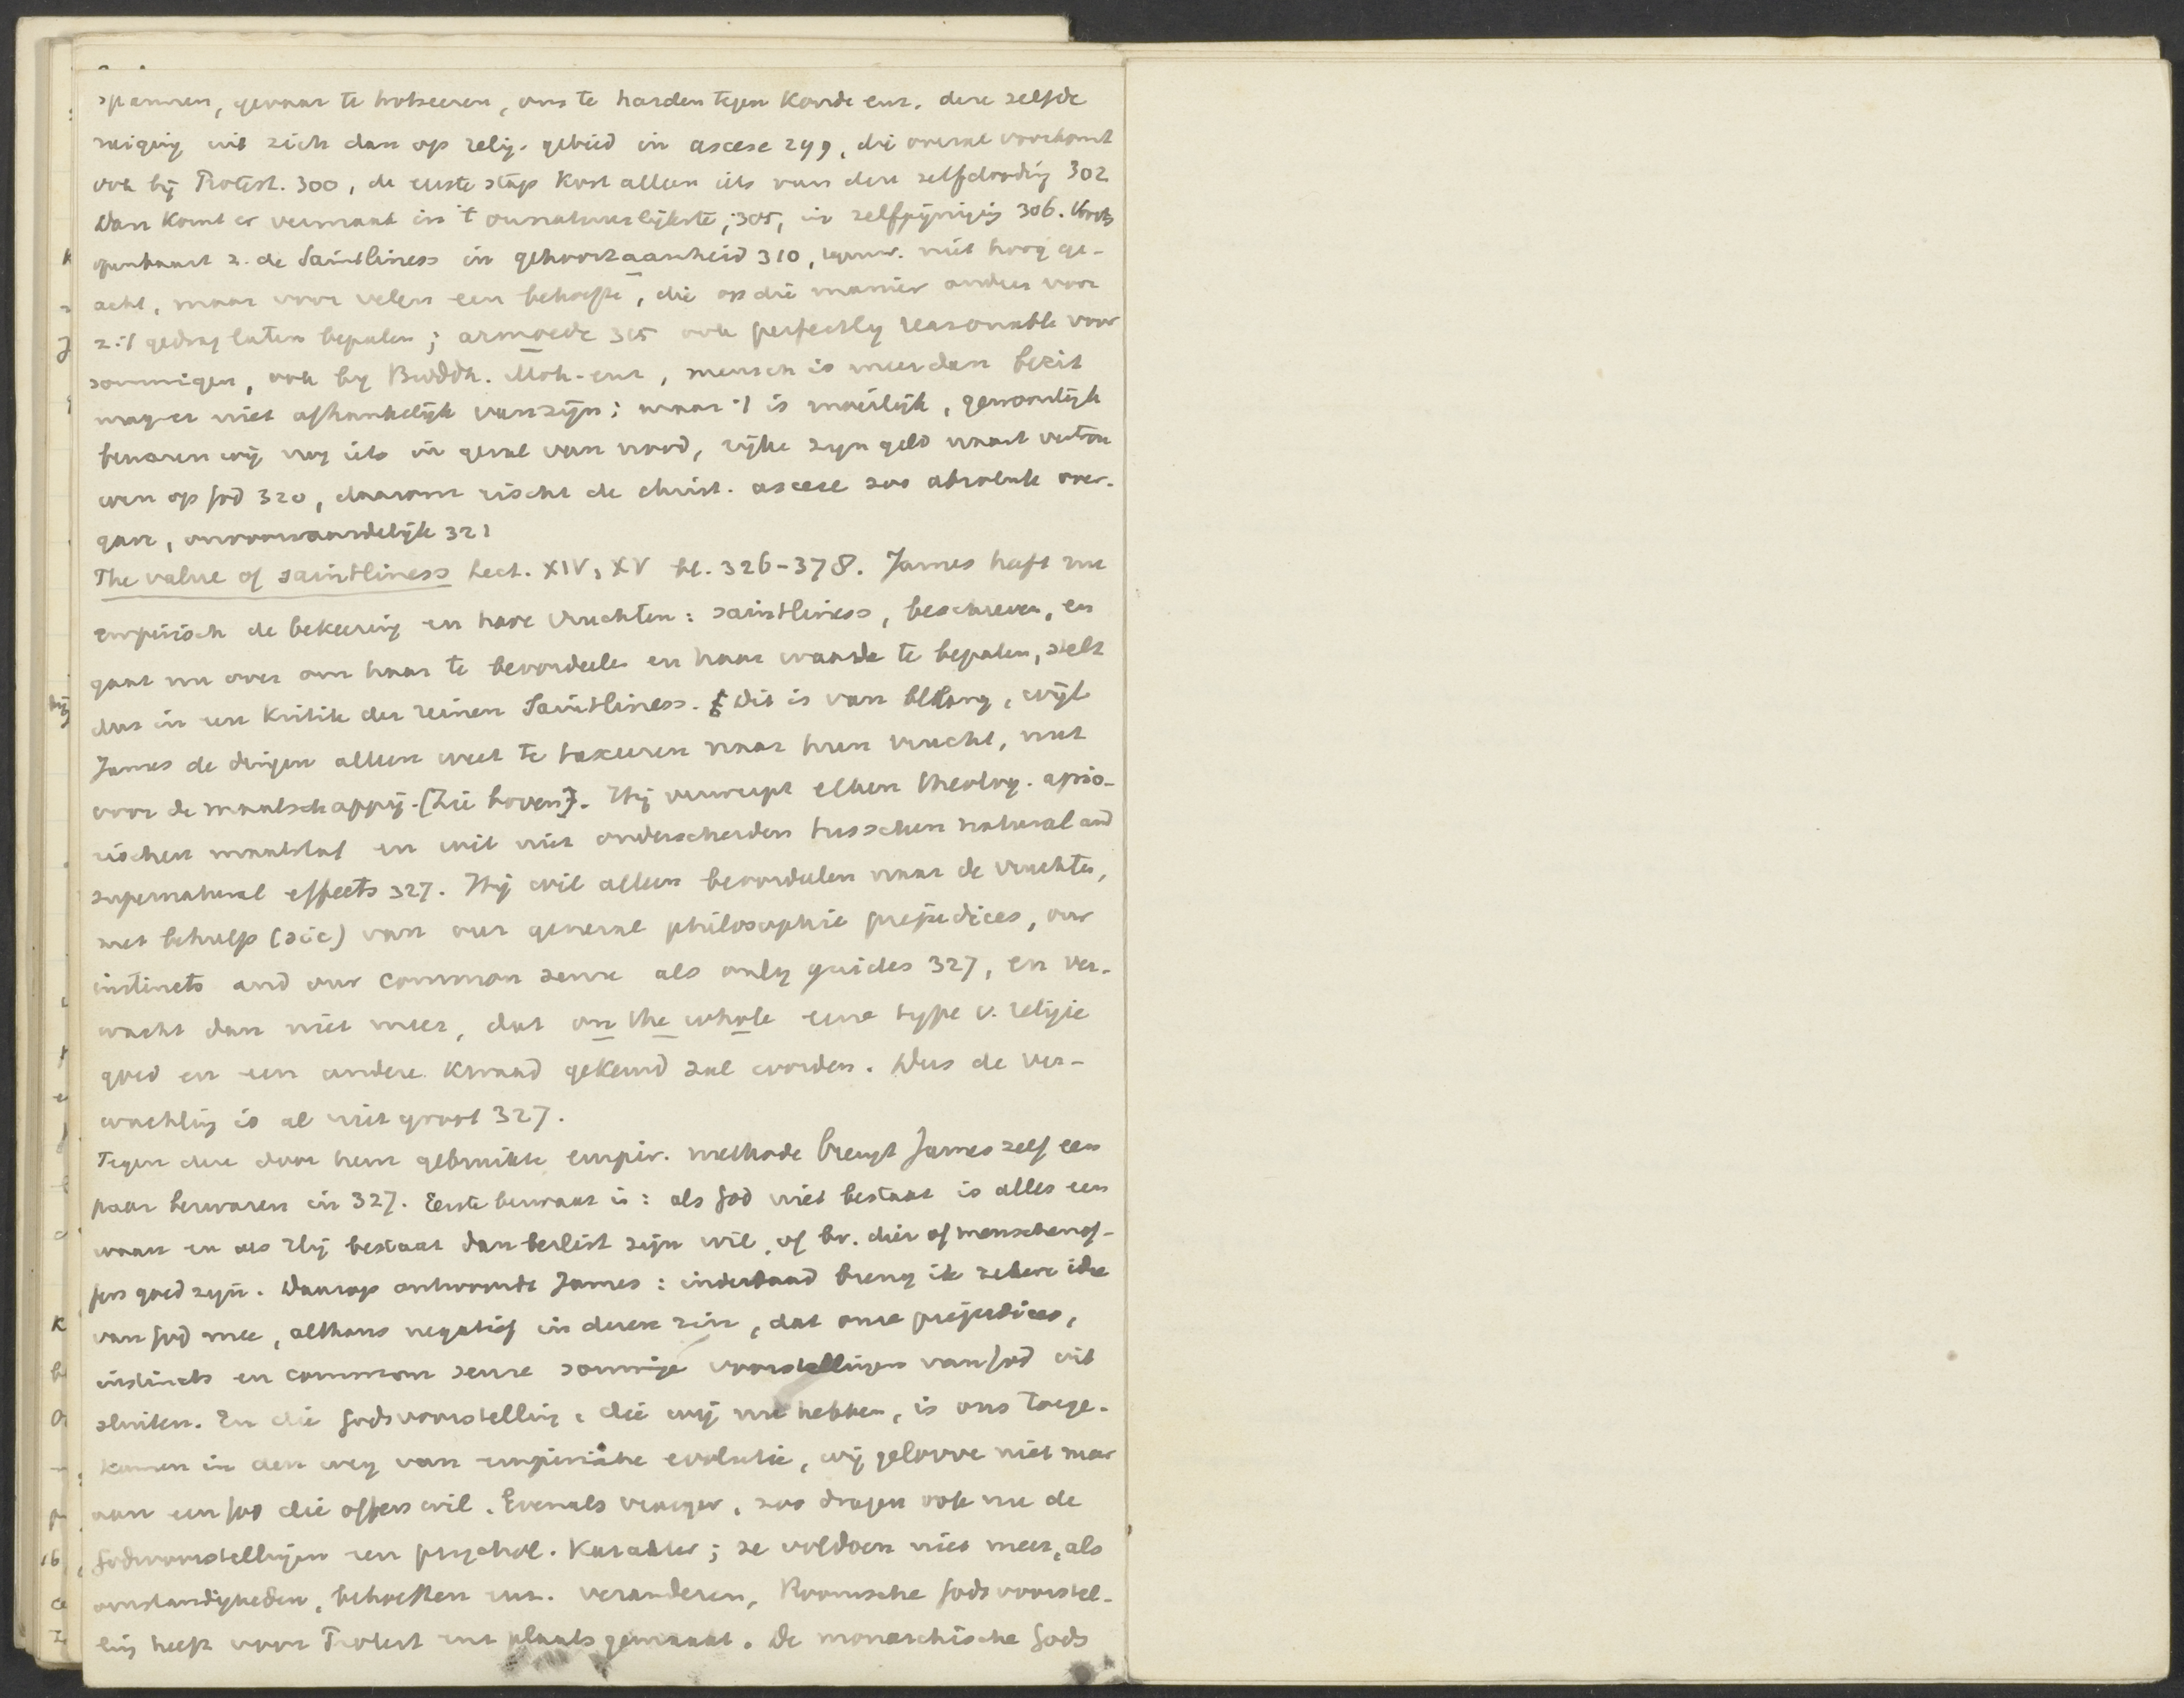 spannen, gevaar te trotseeren, ons te harden tegen koude enz. deze zelfde
neiging uit zich dan op relig. gebied in ascese 299, die overal voorkomt
ook bij Protest. 300, de eerste stap kost alleen iets van deze zelfdooding 302
Dan komt er vermaak in 't onnatuurlijkste, 305, in zelfpijniging 306. Voorts
openbaart z. de Saintliness in gehoorzaamheid 310, tegenw. niet hoog ge-
acht, maar voor velen een behoefte, die op die manier ander voor
z. 't gedrag laten bepalen; armoede 315 ook perfectly reasonable voor
sommigen, ook by Buddh. Moh. enz, mensch is meer dan bezit
mag er niet afhankelijk van zijn; maar 't is moeilijk, gewoonlijk
bewaren wij nog iets in geval van nood, rijke zijn geld naast vertrou
wen op God 320, daarom eischt de christ. ascese zoo absolute over-
gave, onvoorwaardelijk 321
The value of saintliness Lect. XIV, XV bl. 326-378. James heeft nu
empirisch de bekeering en hare vruchten: saintliness, beschreven, en
gaat nu over om haar te beoordeelen en haar waarde te bepalen, stelt
dus in een Kritik der reinen Saintliness. Dit is van belang, wijl
James de dingen alleen weet te taxeeren naar hun vrucht, nut
voor de maatschappij. [Zie boven]. Hij verwerpt elken theolog. aprio-
rischen maatstaf en wil niet onderscheiden tusschen natural and
supernatural effects 327. Hij wil alleen beoordeelen naar de vruchten,
met behulp (sic) van our general philosophic prejudices, our
instincts and our common sense als only guides 327, en ver-
wacht dan niet meer, dat on the whole eene type v. religie
goed en een andere kwaad gekeurd zal worden. Dus de ver-
wachting is al niet groot 327.
Tegen deze door hem gebruikte empir. methode brengt James zelf een
paar bezwaren in 327. Eerste bezwaar is: als God niet bestaat is alles een
waan en als Hij bestaat dan beslist zijn wil, of bv. dier of menschenof-
fers goed zijn. Daarop antwoordt James: inderdaad breng ik zekere idee
van God mee, althans negatief in dezen zin, dat onze prejudices,
instincts en common sense sommige voorstellingen van God uit
sluiten. En die Godsvoorstelling, die wij nu hebben, is ons toege-
komen in den weg van empirische evolutie, wij gelooven niet meer
aan een God die offers wil. Evenals vroeger, zoo dragen ook nu de
Godsvoorstellingen een psychol. karakter; ze voldoen niet meer, als
omstandigheden, behoeften enz. veranderen, Roomsche Godsvoorstel-
ling heeft voor Protest enz plaats gemaakt. De monarchische Gods